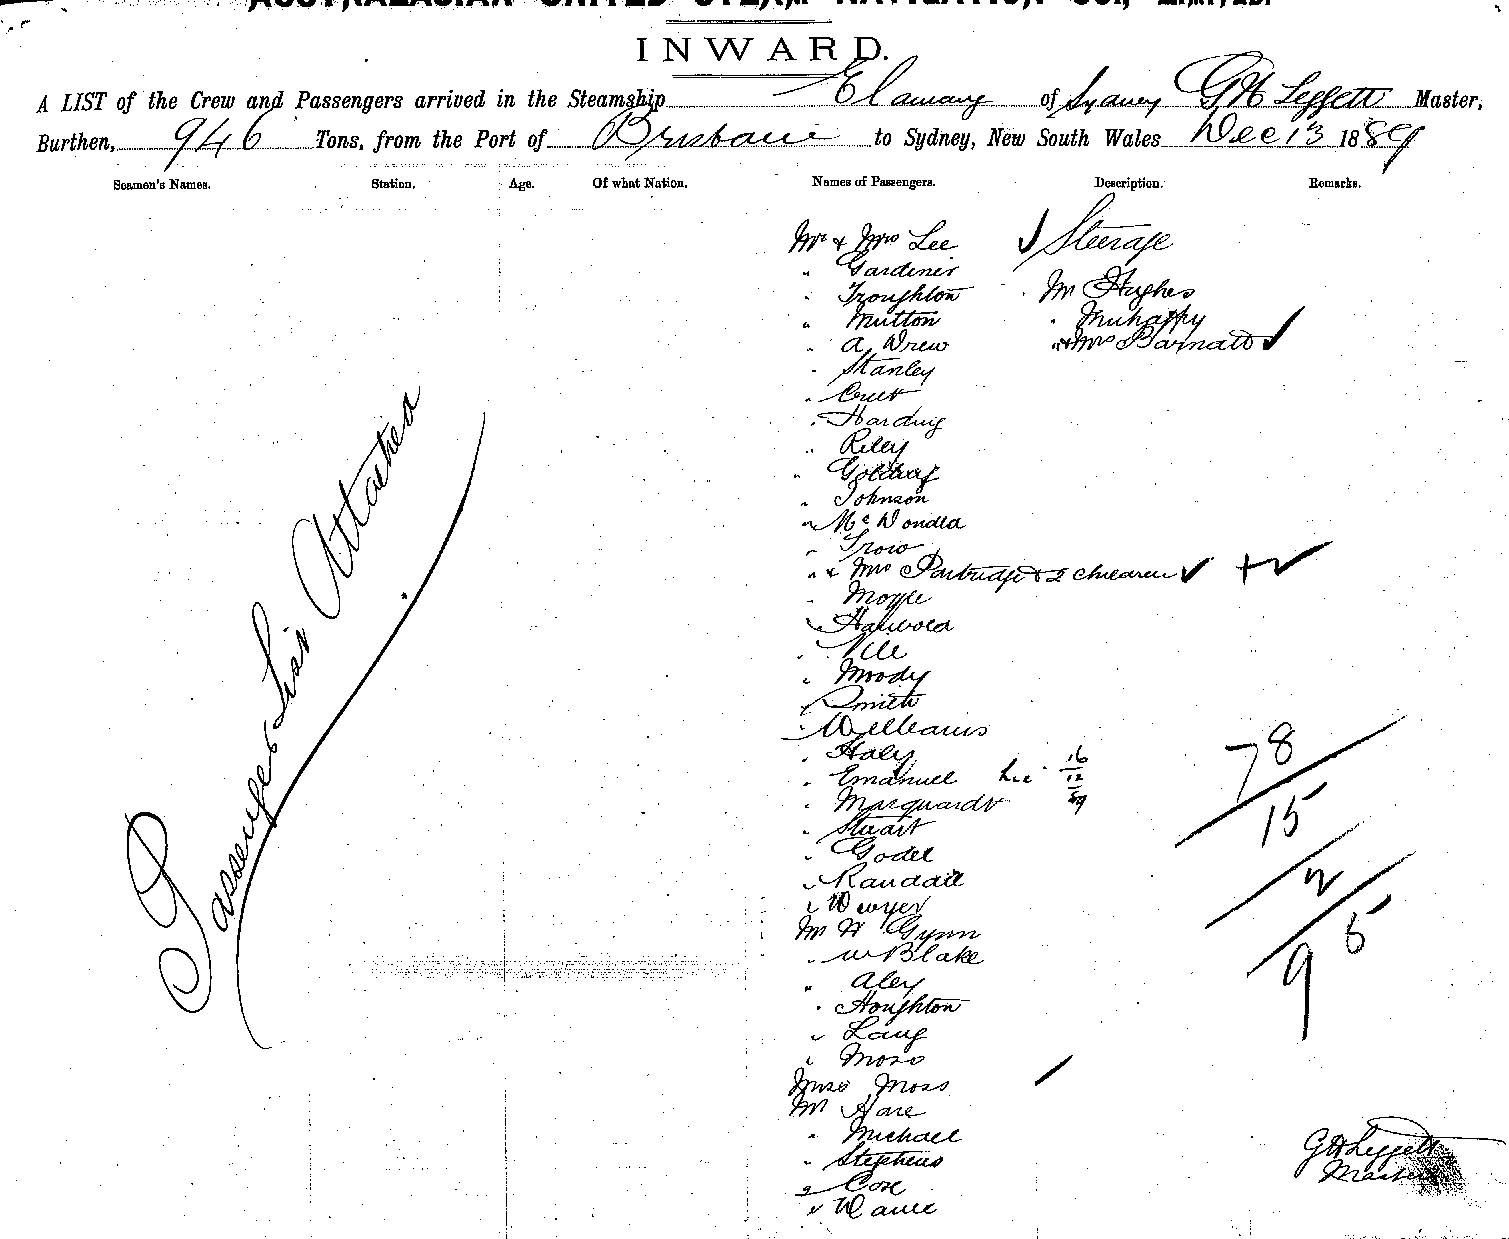 AUSTRALASIAN UNITED STEAM NAVIGATION CO., LIMITED.
INWARD.
A LIST of the Crew and Passengers arrived in the Steamship Elamang of Sydney G H Leggett Master,
Burthen, 946 Tons, from the Port of Brisbane to Sydney, New South Wales Dec 13 1889
Seamen's Names. Station. Age. Of what Nation. Names of Passengers. Description. Remarks.
Mr & Mrs Lee ✓ Steerage
" Gardiner
" Troughton Mr Hughes
" Mutton "
" A Drew " & Mrs Barnatt ✓
" Stanley
"
" Harding
" Riley
"
" Johnson
" Mc
" Trow
" & Mrs Partridge & 2 children ✓ + ✓
" Moyle
"
"
" Moody
" Smith
" Williams
" Haley
" Emanuel Lee 16/12/89
" Marquardt
" Stuart
" Godel
" Randall
" Dwyer
Mr H Glynn
" W Blake
" Aley
" Houghton
" Lang
" Moss
Miss Moss
Mr Hare
" Michael
" Stephens
" Cox
"
Passenger List Attached
78
15
2
95
G H Leggett
Master